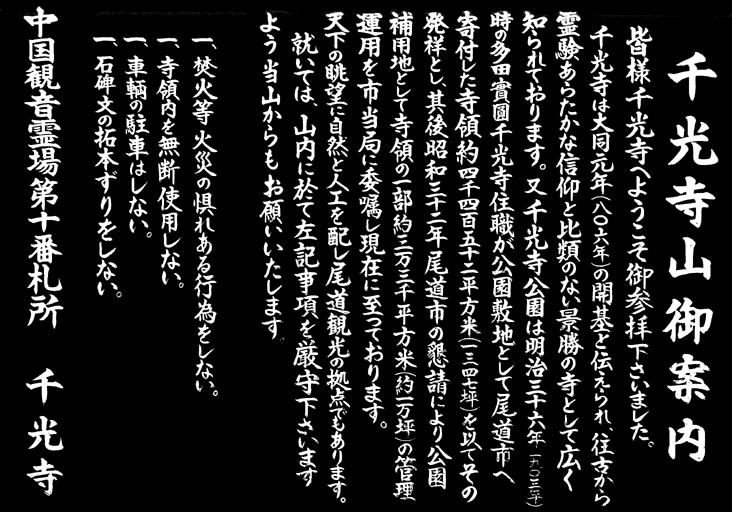 千光寺山御案内
皆様千光寺へようこそ御参拝下さいました。
千光寺は大同元年(八〇六年)の開基と伝えられ、往古から
霊験あらたかな信仰と比類のない景勝の寺として広く
知られております。又千光寺公園は明治三十六年(一九〇三年)
時の多田實圓千光寺住職が公園敷地として尾道市へ
寄付した寺領約四千四百五十二平方米(一三四七坪)を以てその
発祥とし、其後昭和三十二年尾道市の懇請により公園
補用地として寺領の一部約三万三千平方米(約一万坪)の管理
運用を市当局に委嘱し現在に至っております。
天下の眺望に自然と人工を配し尾道観光の拠点でもあります。
就いては、山内に於て左記事項を厳守下さいます
よう当山からもお願いいたします。
一、焚火等火災の惧れある行為をしない。
一、寺領内を無断使用しない。
一、車輌の駐車はしない。
一、石碑文の拓本ずりをしない。
中国観音霊場第十番札所 千光寺